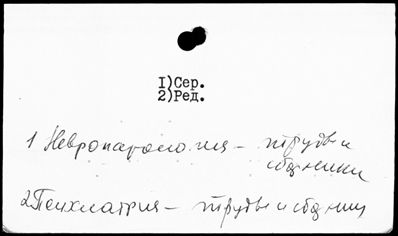 I)Сер.
2)Ред.
1 Невропатология – труды и
сборники
2 Психиатрия – труды и сборник